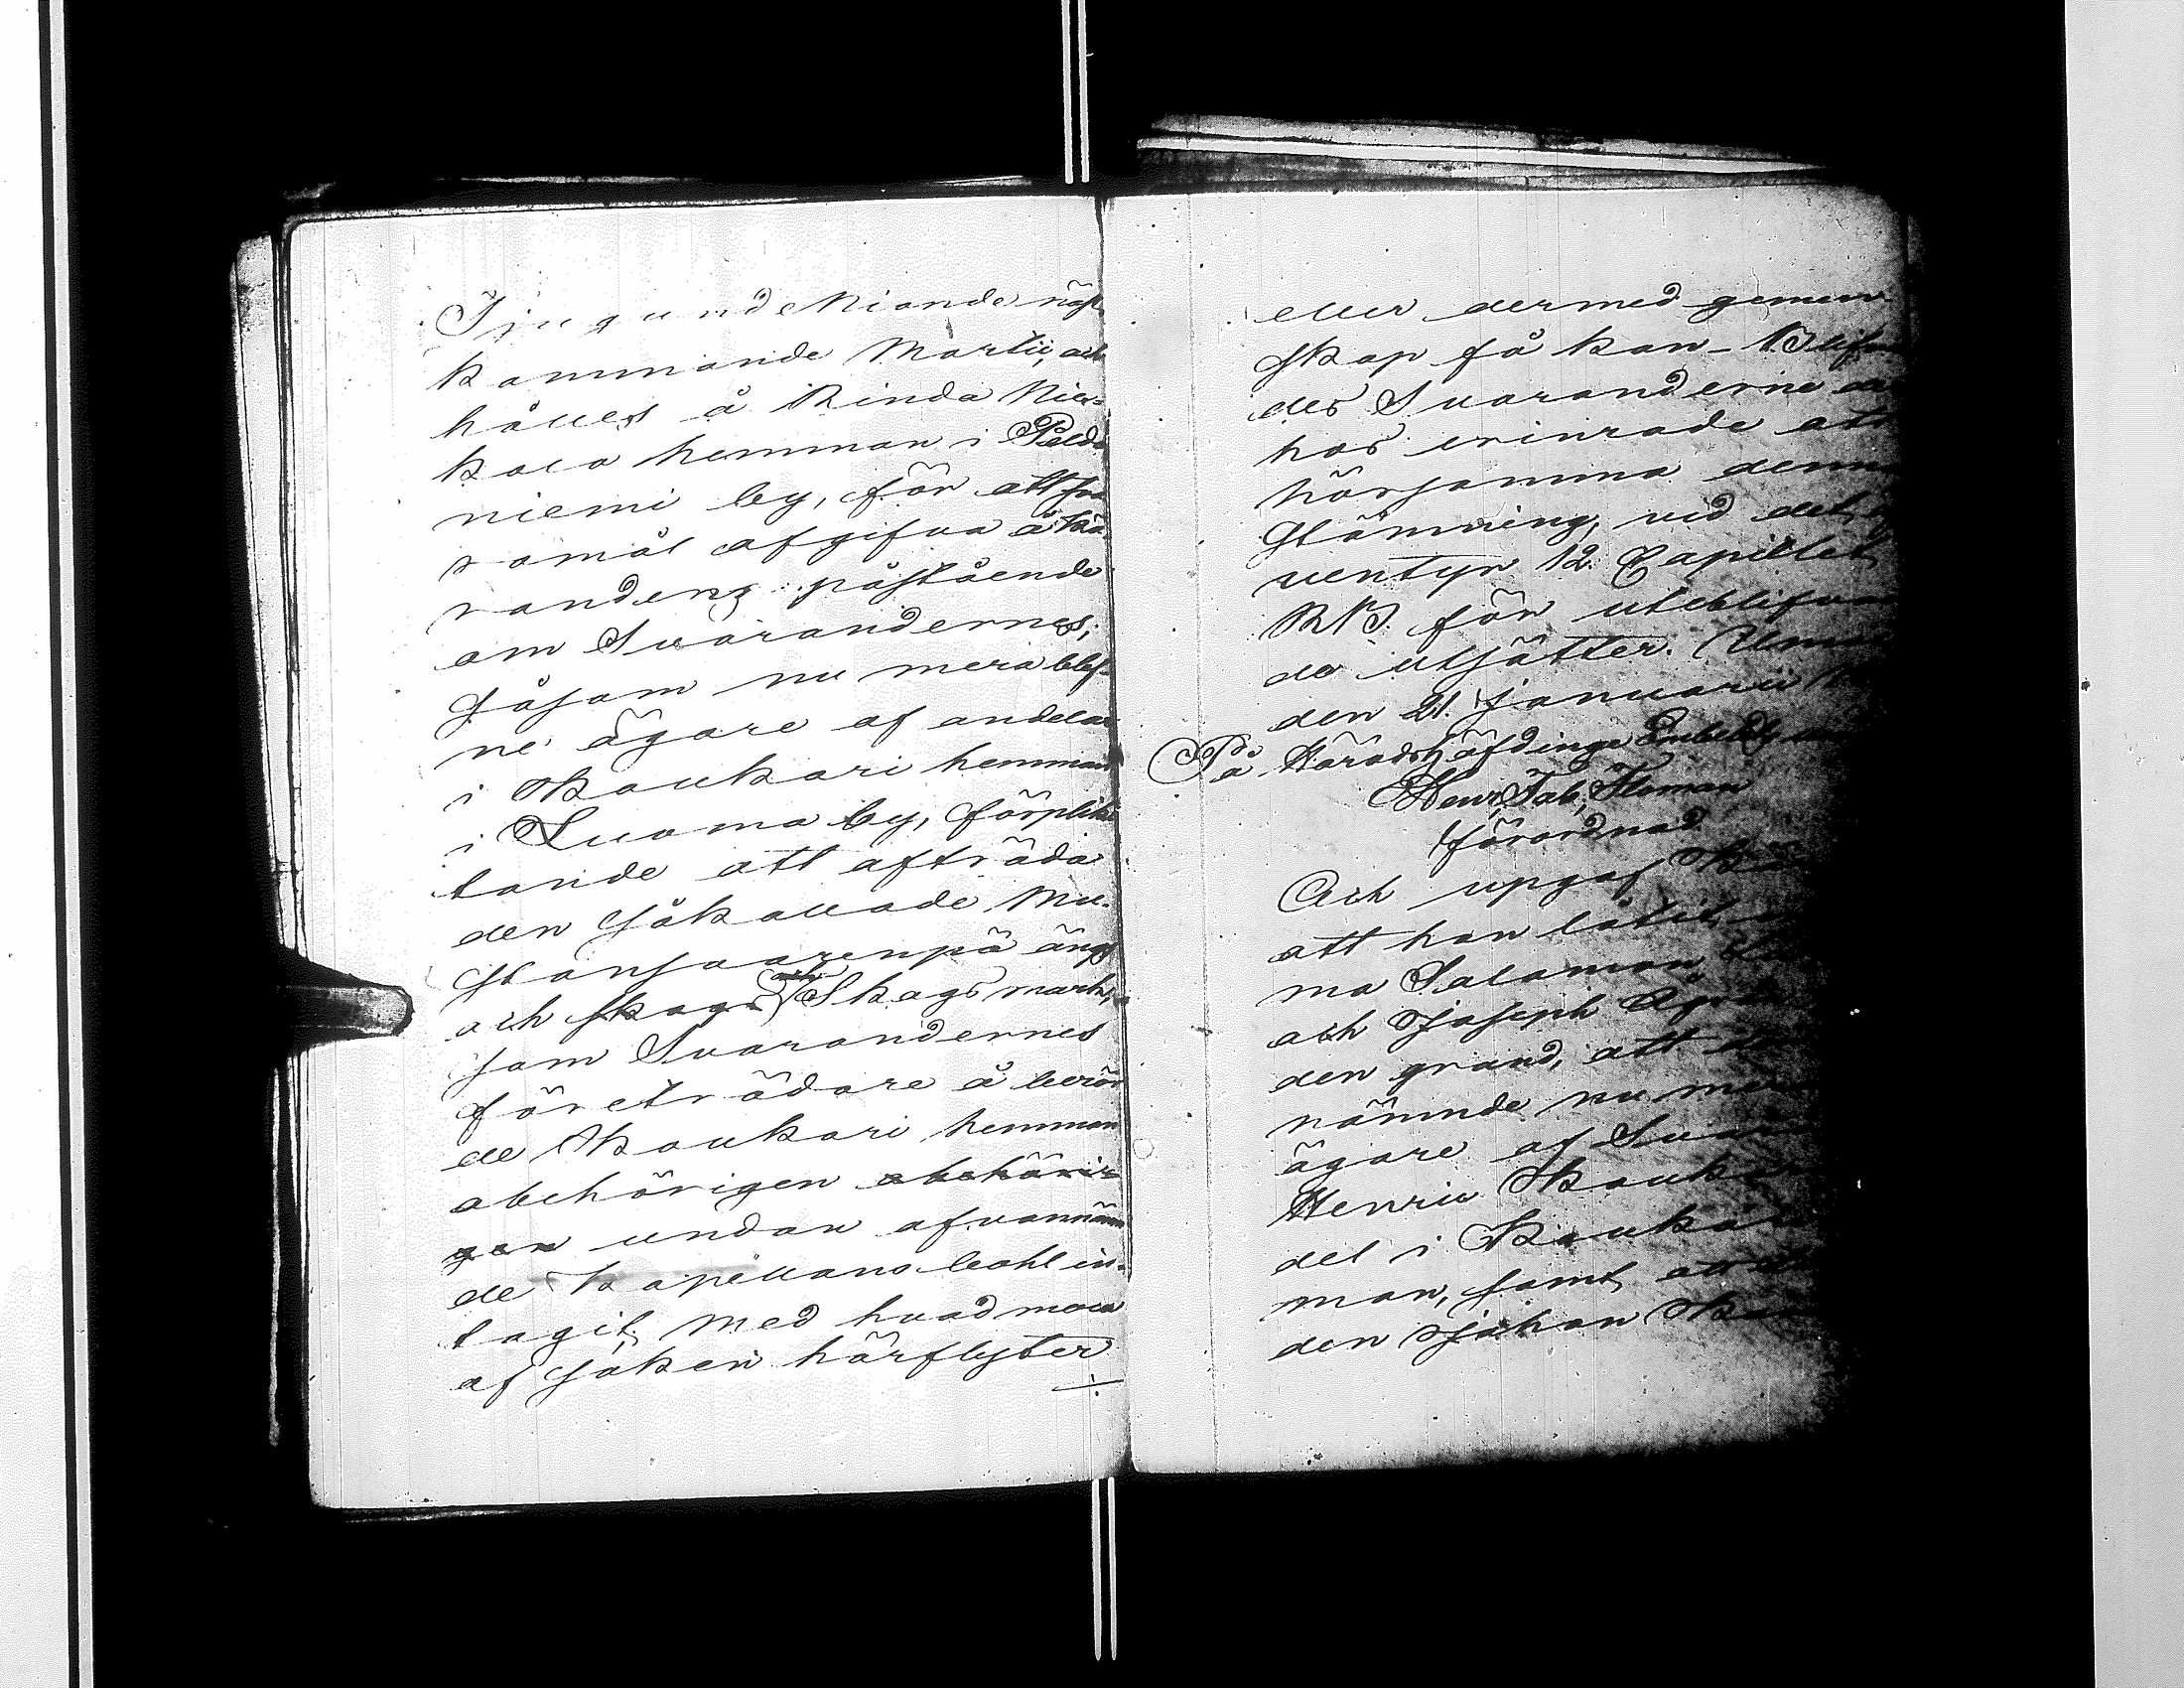 Tjugundeniande näst
kommande Martii, och
hålles å Rinda Nic-
kola hemman i Peldo
niemi by, för att sva
romål afgifva å Kä
randens påstående
om Svarandernes,
såsom nu mera blef
ne ägare af andelar
i Koukari hemman
i Luoma by, förplik
tande att afträda
den såkallade Mu-
stansaarenpä äng
och skogs och Skogs mark,
som Svarandernes
företrädare å berör
de Koukari hemman
obehörigen obehöri-
gen undan ofvannäm
de Kapellans bohl in-
tagit, med hvad mera
af saken härflyter
eller dermed gemen-
skap få kan - Blifva
des Svaranderne
hos erinrade att
hörsamma denna
Stämning, vid det
ventyr 12. Capitlet
RB. för uteblifvan
de utsätter.
den 21. Januarii
På Häradshöfdinge Embetets
Henr. Jab. Floman
förordnad
Och upgaf
att han låtit
ma Salomon
och Joseph
den grund, att
nämnde nu mera
ägare af
Henric Kouka
del i Koukari
man, samt att
den Johan